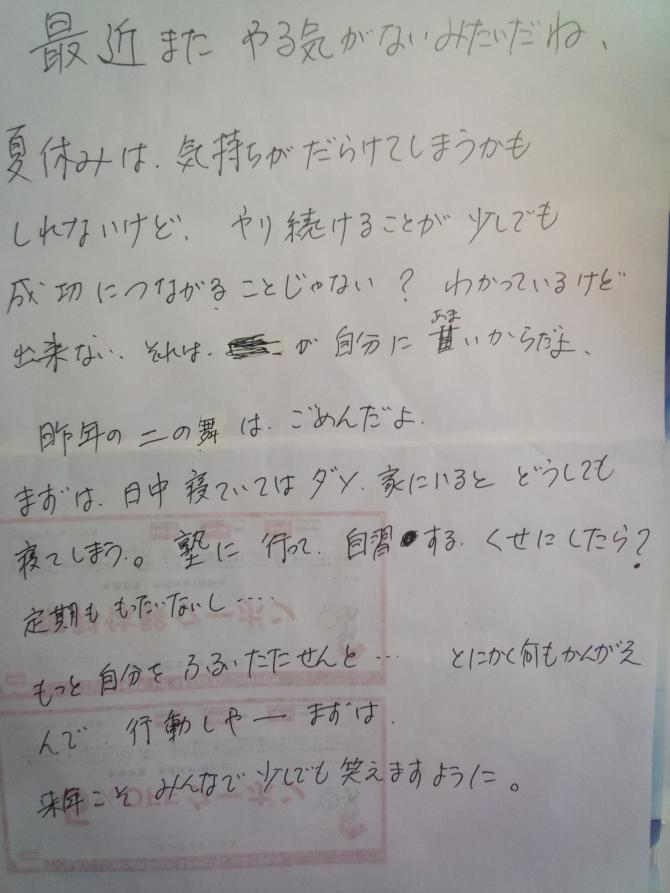 最近また やる気がないみたいだね、
夏休みは、気持ちがだらけてしまうかも
しれないけど、やり続けることが少しでも
成功につながることじゃない？ わかっているけど
出来ない、それは、が自分に甘いからだよ、
あま
昨年の二の舞は、ごめんだよ.
まずは、日中寝ていてはダメ、家にいると どうしても
寝てしまう。塾に行って、自習する、くせにしたら？
定期ももったいないし‥‥
もっと自分をふるいたたせんと… とにかく何もかんがえ
んで、行動しやー まずは、
来年こそみんなで少しでも笑えますように。
クーポン
OFFクーポン